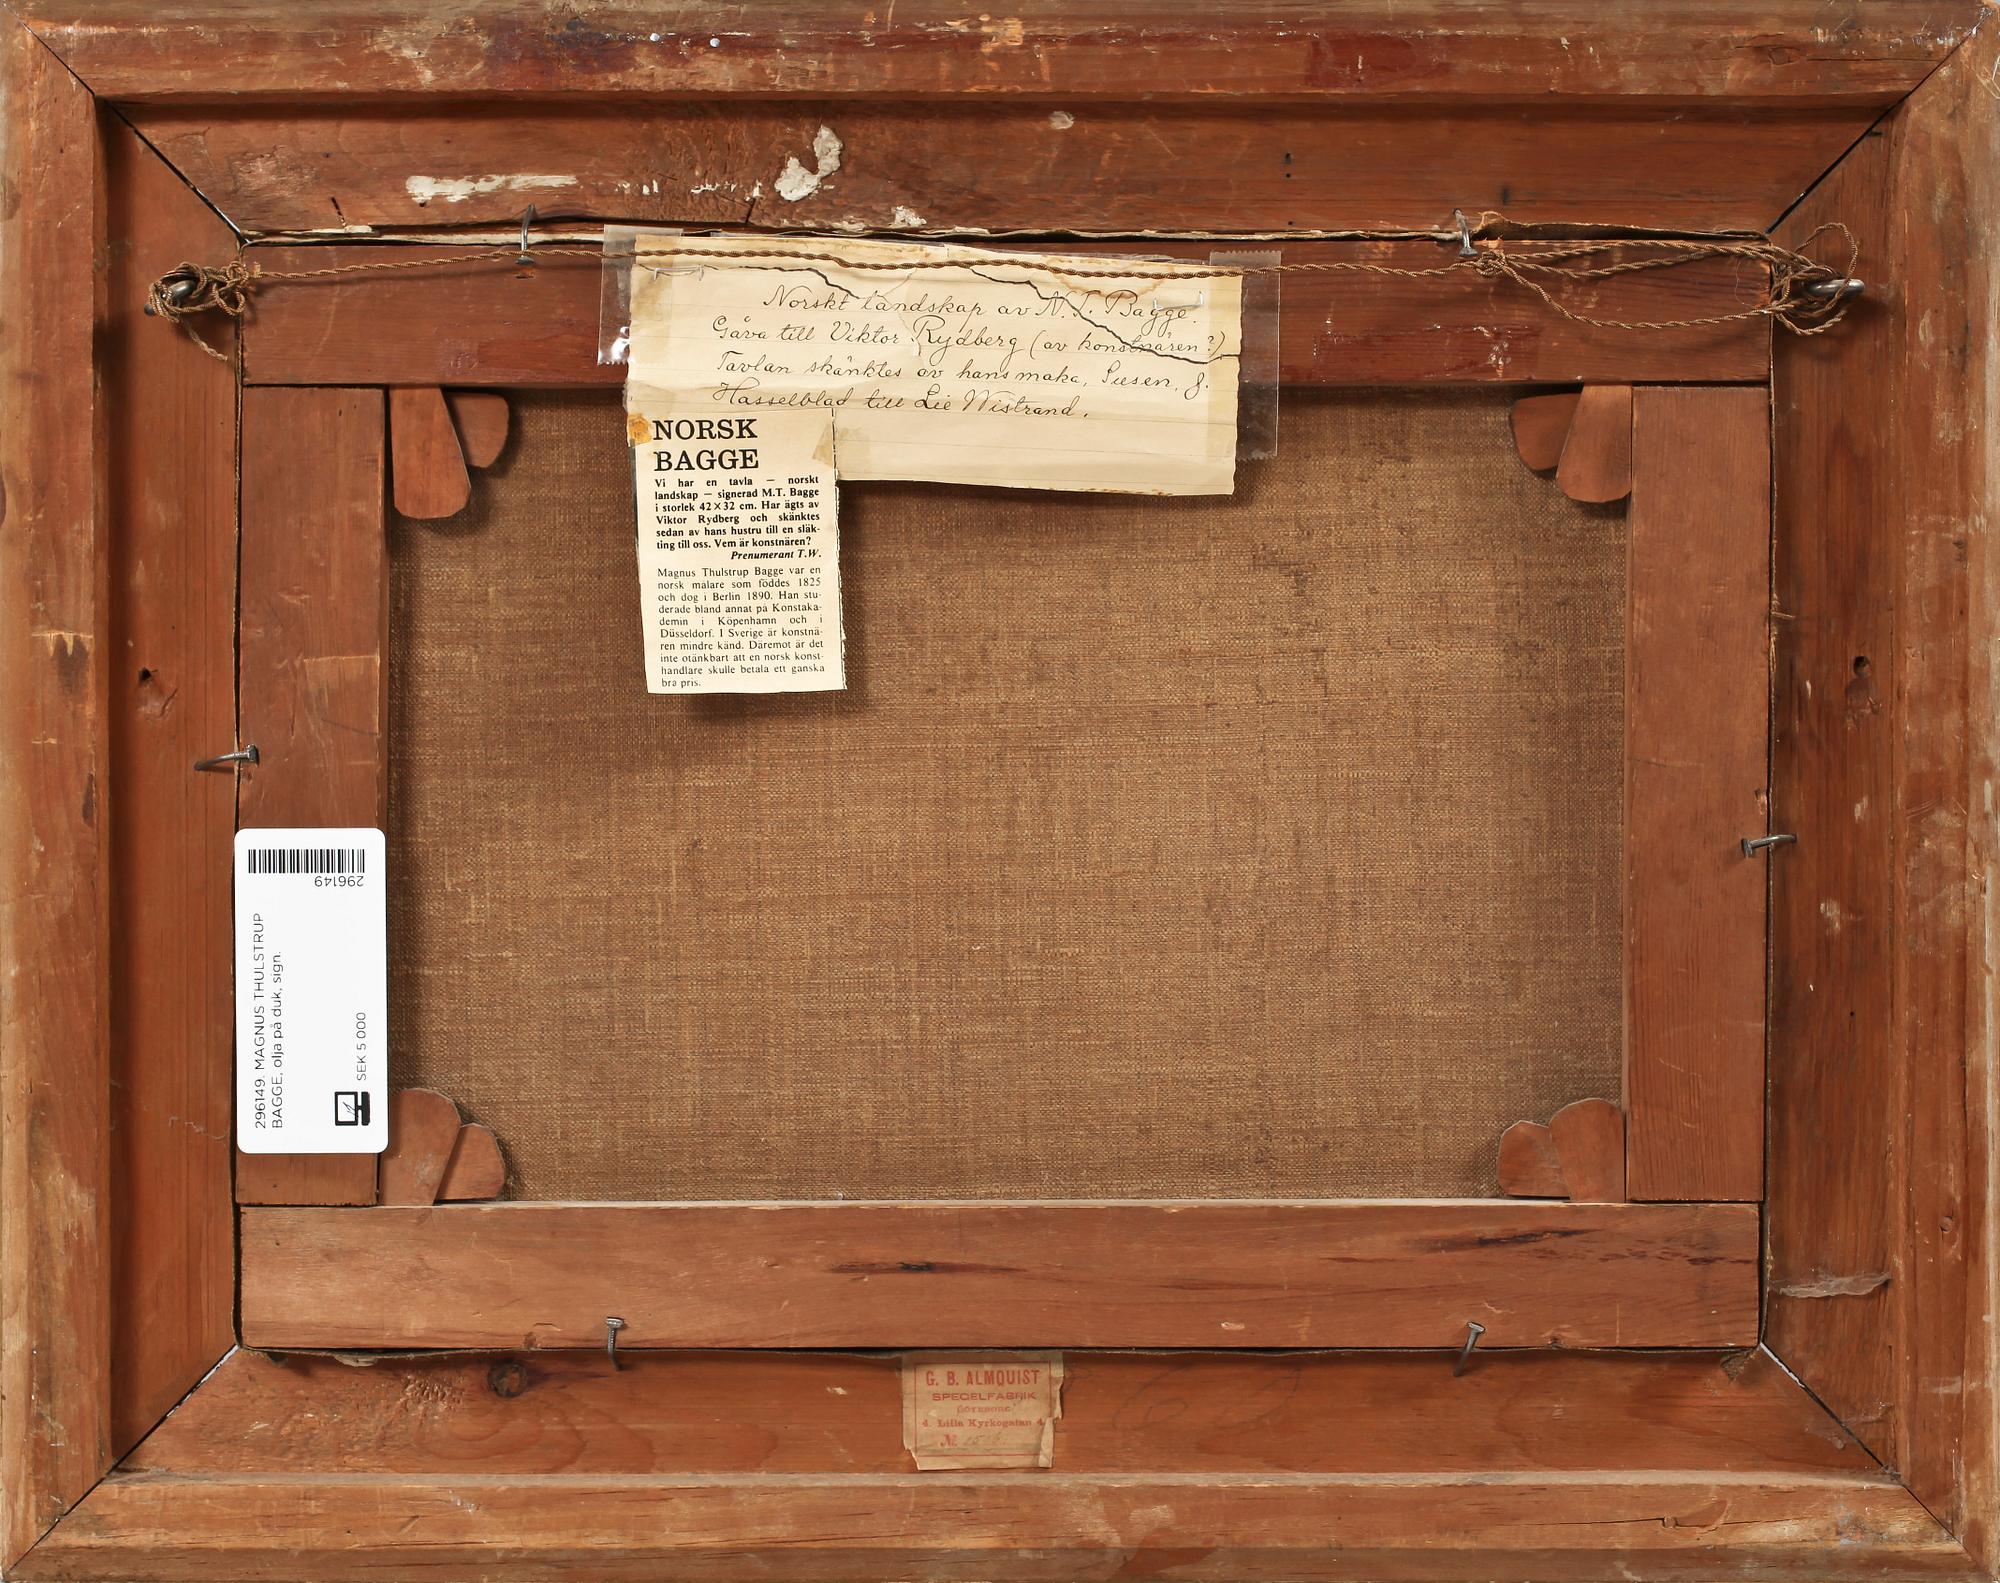 Norskt landskap av N. T. Bagge.
Gåva till Viktor Rydberg (av konstnären?)
Tavlan skänktes av hans maka, Susen, f.
Hasselblad till Lie Wistrand.
NORSK
BAGGE
Vi har en tavla — norskt
landskap — signerad M.T. Bagge
i storlek 42×32 cm. Har ägts av
Viktor Rydberg och skänktes
sedan av hans hustru till en släk-
ting till oss. Vem är konstnären?
Prenumerant T.W.
Magnus Thulstrup Bagge var en
norsk målare som föddes 1825
och dog i Berlin 1890. Han stu-
derade bland annat på Konstaka-
demin i Köpenhamn och i
Düsseldorf. I Sverige är konstnä-
ren mindre känd. Däremot är det
inte otänkbart att en norsk konst-
handlare skulle betala ett ganska
bra pris.
296149
296149. MAGNUS THULSTRUP
BAGGE, olja på duk, sign.
SEK 5 000
G. B. ALMQUIST
SPEGELFABRIK
GÖTEBORG
4. Lilla Kyrkogatan 4
№